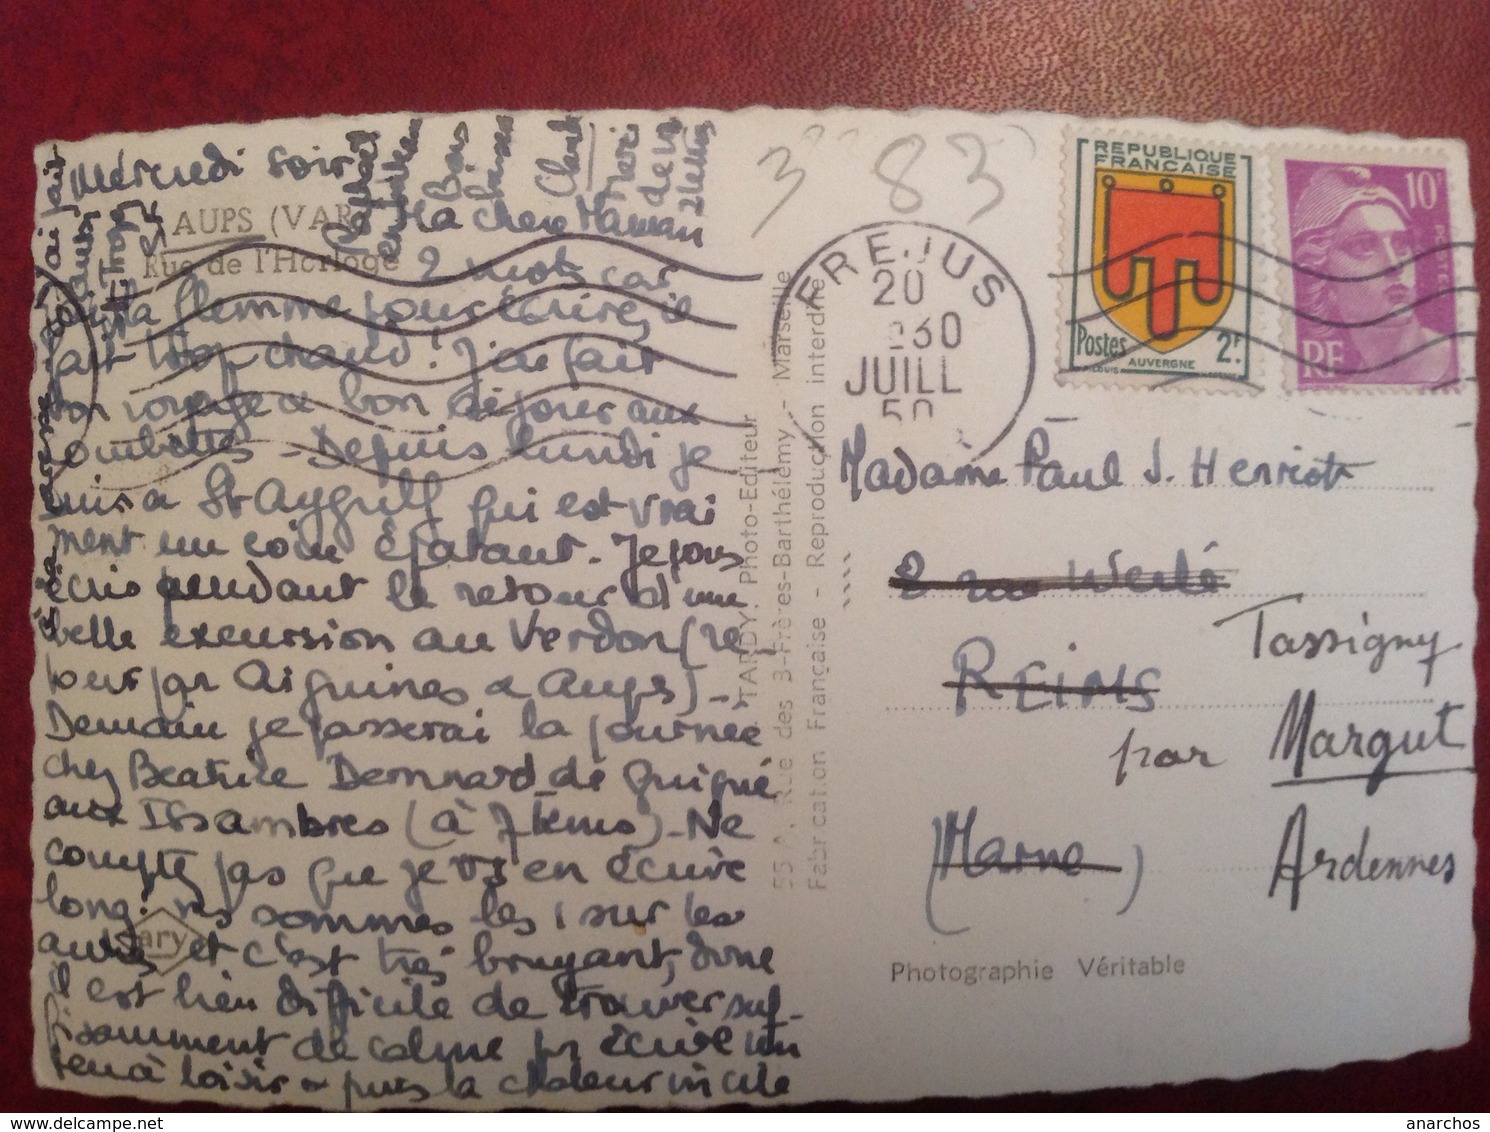 Mercredi soir
AUPS (VAR)
Rue de l'Horloge
Ma chère Maman
2 mots car
la flemme pour écrire, il
fait trop chaud! J'ai fait
bon voyage & bon déjeuner aux
Depuis lundi je
suis à St Aygulf qui est vrai
ment un coin épatant. Je vous
écris pendant le retour d'une
belle excursion au Verdon (re
tour par Aiguines & Aups) -
Demain je passerai la journée
chez Béatrice Bonnard de Guigné
aux Issambres (à 7 kms) - Ne
comptez pas que je vs en écrive
long: ns sommes les 1 sur les
autres et c'est très bruyant, donc
il est bien difficile de trouver suf-
fisamment de calme pr écrire un
peu à loisir & puis la chaleur incite
Bons
baisers
Claude
Merci
de vos
2 lettres
TARDY, Photo-Editeur
55 A, Rue des 3-Frères-Barthélémy - Marseille
Fabrication Française - Reproduction interdite
Mary
3 83
FREJUS
20
1230
JUILL
50
REPUBLIQUE
FRANCAISE
Postes 2F.
AUVERGNE
10F
POSTES
RF
Madame Paul J. Henriot
2 rue Werlé
REIMS
Tassigny
par Margut
(Marne)
Ardennes
Photographie Véritable
anarchos